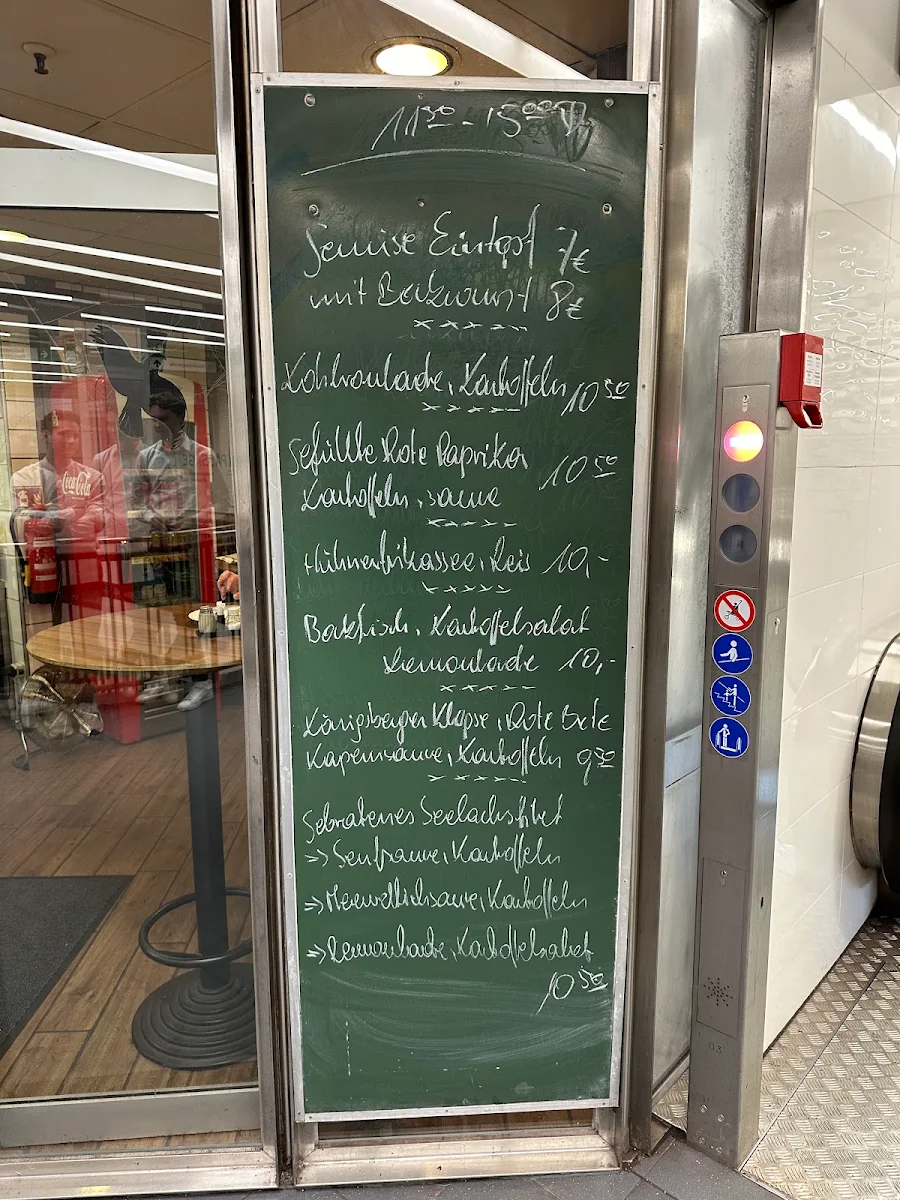 11³⁰ - 15⁰⁰
Gemüse Eintopf 7€
mit Bockwurst 8€
xxxxx
Kohlroulade, Kartoffeln 10⁵⁰
xxxxx
Gefüllte Rote Paprika
Kartoffeln, sauce 10⁵⁰
xxxxx
Hühnerfrikassee, Reis 10,-
xxxxx
Backfisch, Kartoffelsalat
Remoulade 10,-
xxxxx
Königsberger Klopse, Rote Bete
Kapernsauce, Kartoffeln 9⁵⁰
xxxxx
Gebratenes Seelachsfilet
=> Senfsauce, Kartoffeln
=> Meerrettichsauce, Kartoffeln
=> Remoulade, Kartoffelsalat
10⁵⁰
Coca-Cola
03